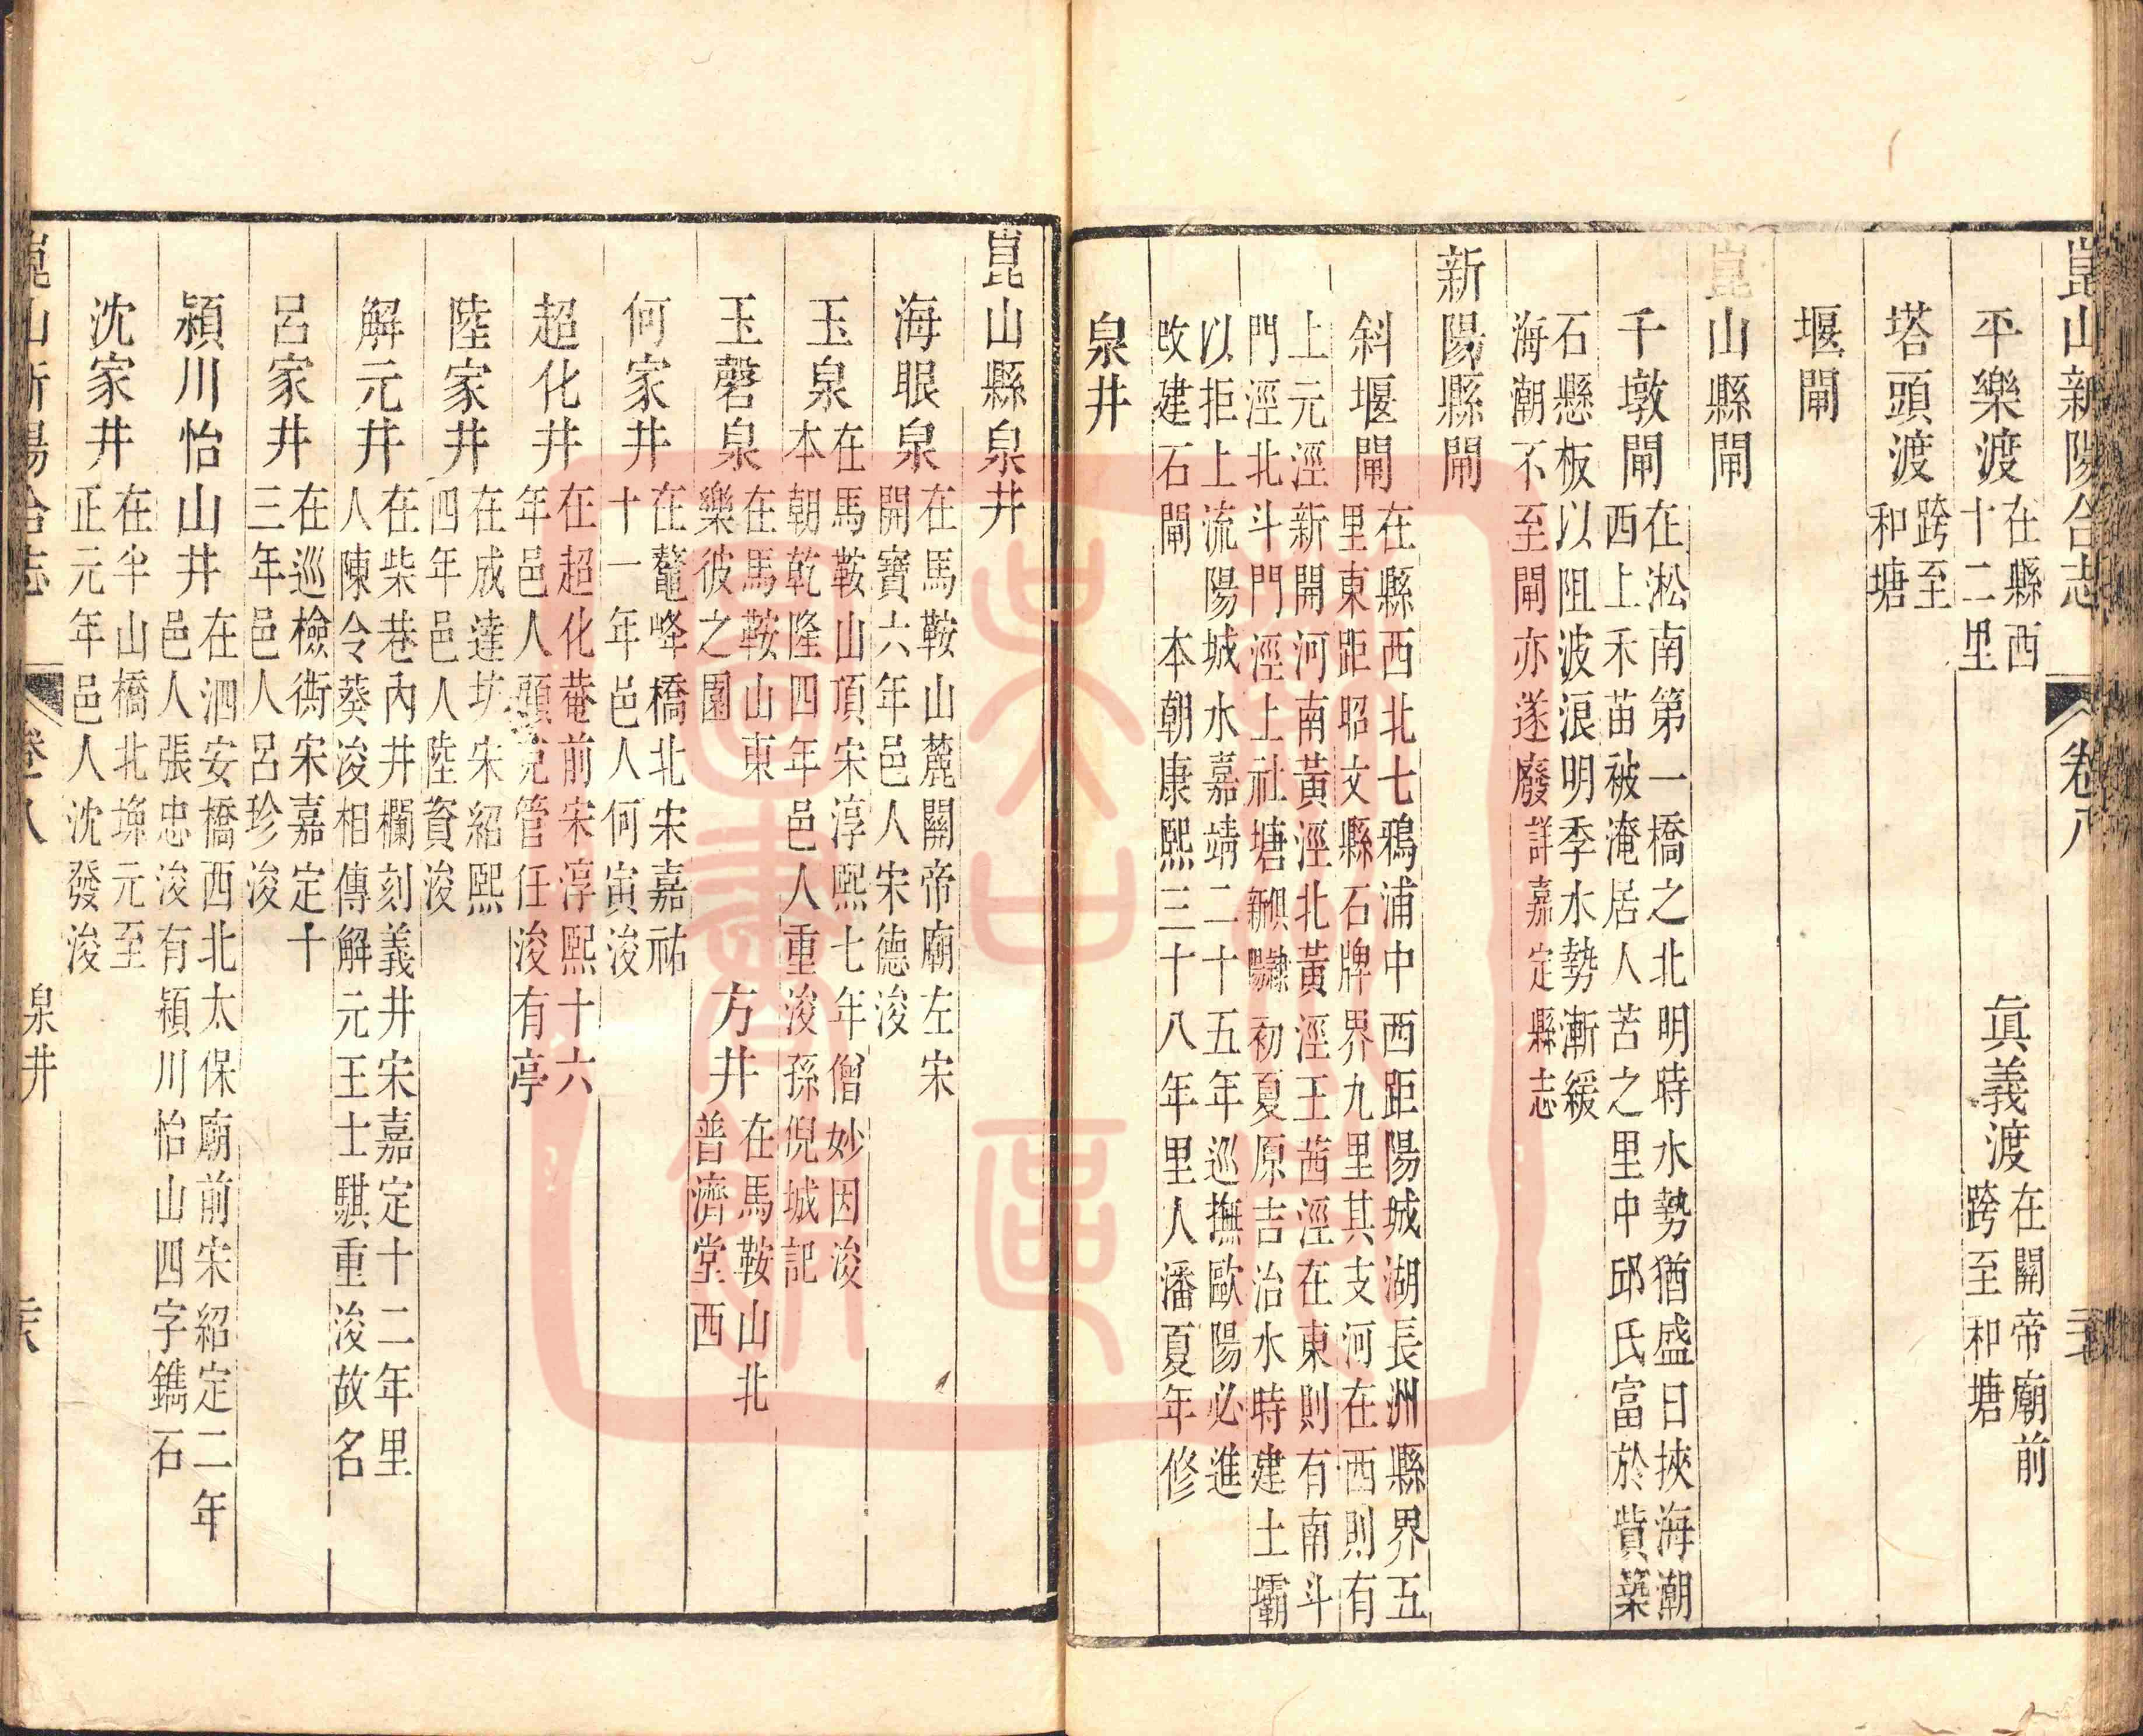 崑山新陽合志 卷八
平樂渡 在縣西十二里 眞義渡 在關帝廟前跨至和塘
塔頭渡 跨至和塘
堰閘
崑山縣閘
千墩閘 在淞南第一橋之北明時水勢猶盛日挾海潮西上禾苗被淹居人苦之里中邱氏富於貲築
石懸板以阻波浪明季水勢漸緩海潮不至閘亦遂廢 詳嘉定縣志
新陽縣閘
斜堰閘 在縣西北七鴉浦中西距陽城湖長洲縣界五里東距昭文縣石牌界九里其支河在西則有
上元涇新開河南黃涇北黃涇王茜涇在東則有南斗門涇北斗門涇上社塘 初夏原吉治水時建土壩
以拒上流陽城水嘉靖二十五年巡撫歐陽必進改建石閘 本朝康熙三十八年里人潘夏年修
泉井
崑山縣泉井
海眼泉 在馬鞍山麓關帝廟左宋開寶六年邑人宋德浚
玉泉 在馬鞍山頂宋淳熙七年僧妙因浚本朝乾隆四年邑人重浚孫倪城記
玉磬泉 在馬鞍山東樂彼之園 方井 在馬鞍山北普濟堂西
何家井 在鼇峰橋北宋嘉祐十一年邑人何寅浚
超化井 在超化菴前宋淳熙十六年邑人管任浚有亭
陸家井 在成達坊宋紹熙四年邑人陸資浚
解元井 在柴巷內井欄刻義井宋嘉定十二年里人陳令葵浚相傳解元王士騏重浚故名
呂家井 在巡檢衖宋嘉定十三年邑人呂珍浚
潁川怡山井 在泗安橋西北太保廟前宋紹定二年邑人張忠浚有潁川怡山四字鐫石
沈家井 在半山橋北堍元至正元年邑人沈發浚
崑山新陽合志 卷八 泉井